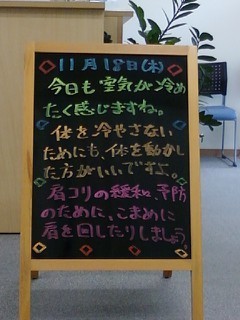 11月18日(木)
今日も空気が冷め
たく感じますね。
体を冷やさない
ためにも、体を動かし
た方がいいですよ。
肩コリの緩和、予防
のために、こまめに
肩を回したりしましょう。